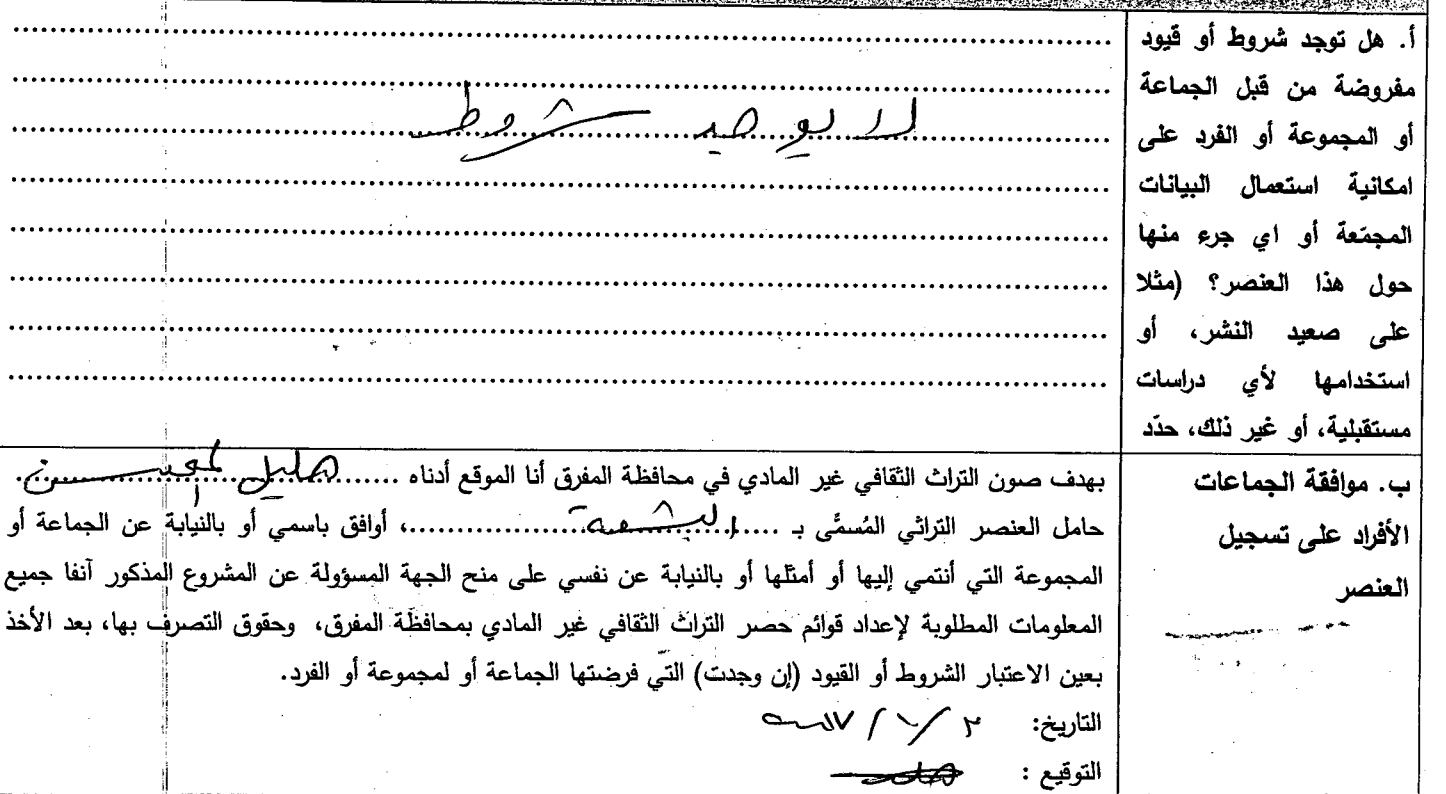 أ. هل توجد شروط أو قيود
مفروضة من قبل الجماعة
أو المجموعة أو الفرد على
امكانية استعمال البيانات
المجمّعة أو اي جرء منها
حول هذا العنصر؟ (مثلا
على صعيد النشر، أو
استخدامها لأي دراسات
مستقبلية، أو غير ذلك، حدّد
لا يوجد شروط
ب. موافقة الجماعات
الأفراد على تسجيل
العنصر
بهدف صون التراث الثقافي غير المادي في محافظة المفرق أنا الموقع أدناه هليل
حامل العنصر التراثي المُسمَّى بـ ، أوافق باسمي أو بالنيابة عن الجماعة أو
المجموعة التي أنتمي إليها أو أمثلها أو بالنيابة عن نفسي على منح الجهة المسؤولة عن المشروع المذكور آنفا جميع
المعلومات المطلوبة لإعداد قوائم حصر التراث الثقافي غير المادي بمحافظة المفرق، وحقوق التصرف بها، بعد الأخذ
بعين الاعتبار الشروط أو القيود (إن وجدت) التي فرضتها الجماعة أو لمجموعة أو الفرد.
التاريخ:
التوقيع :